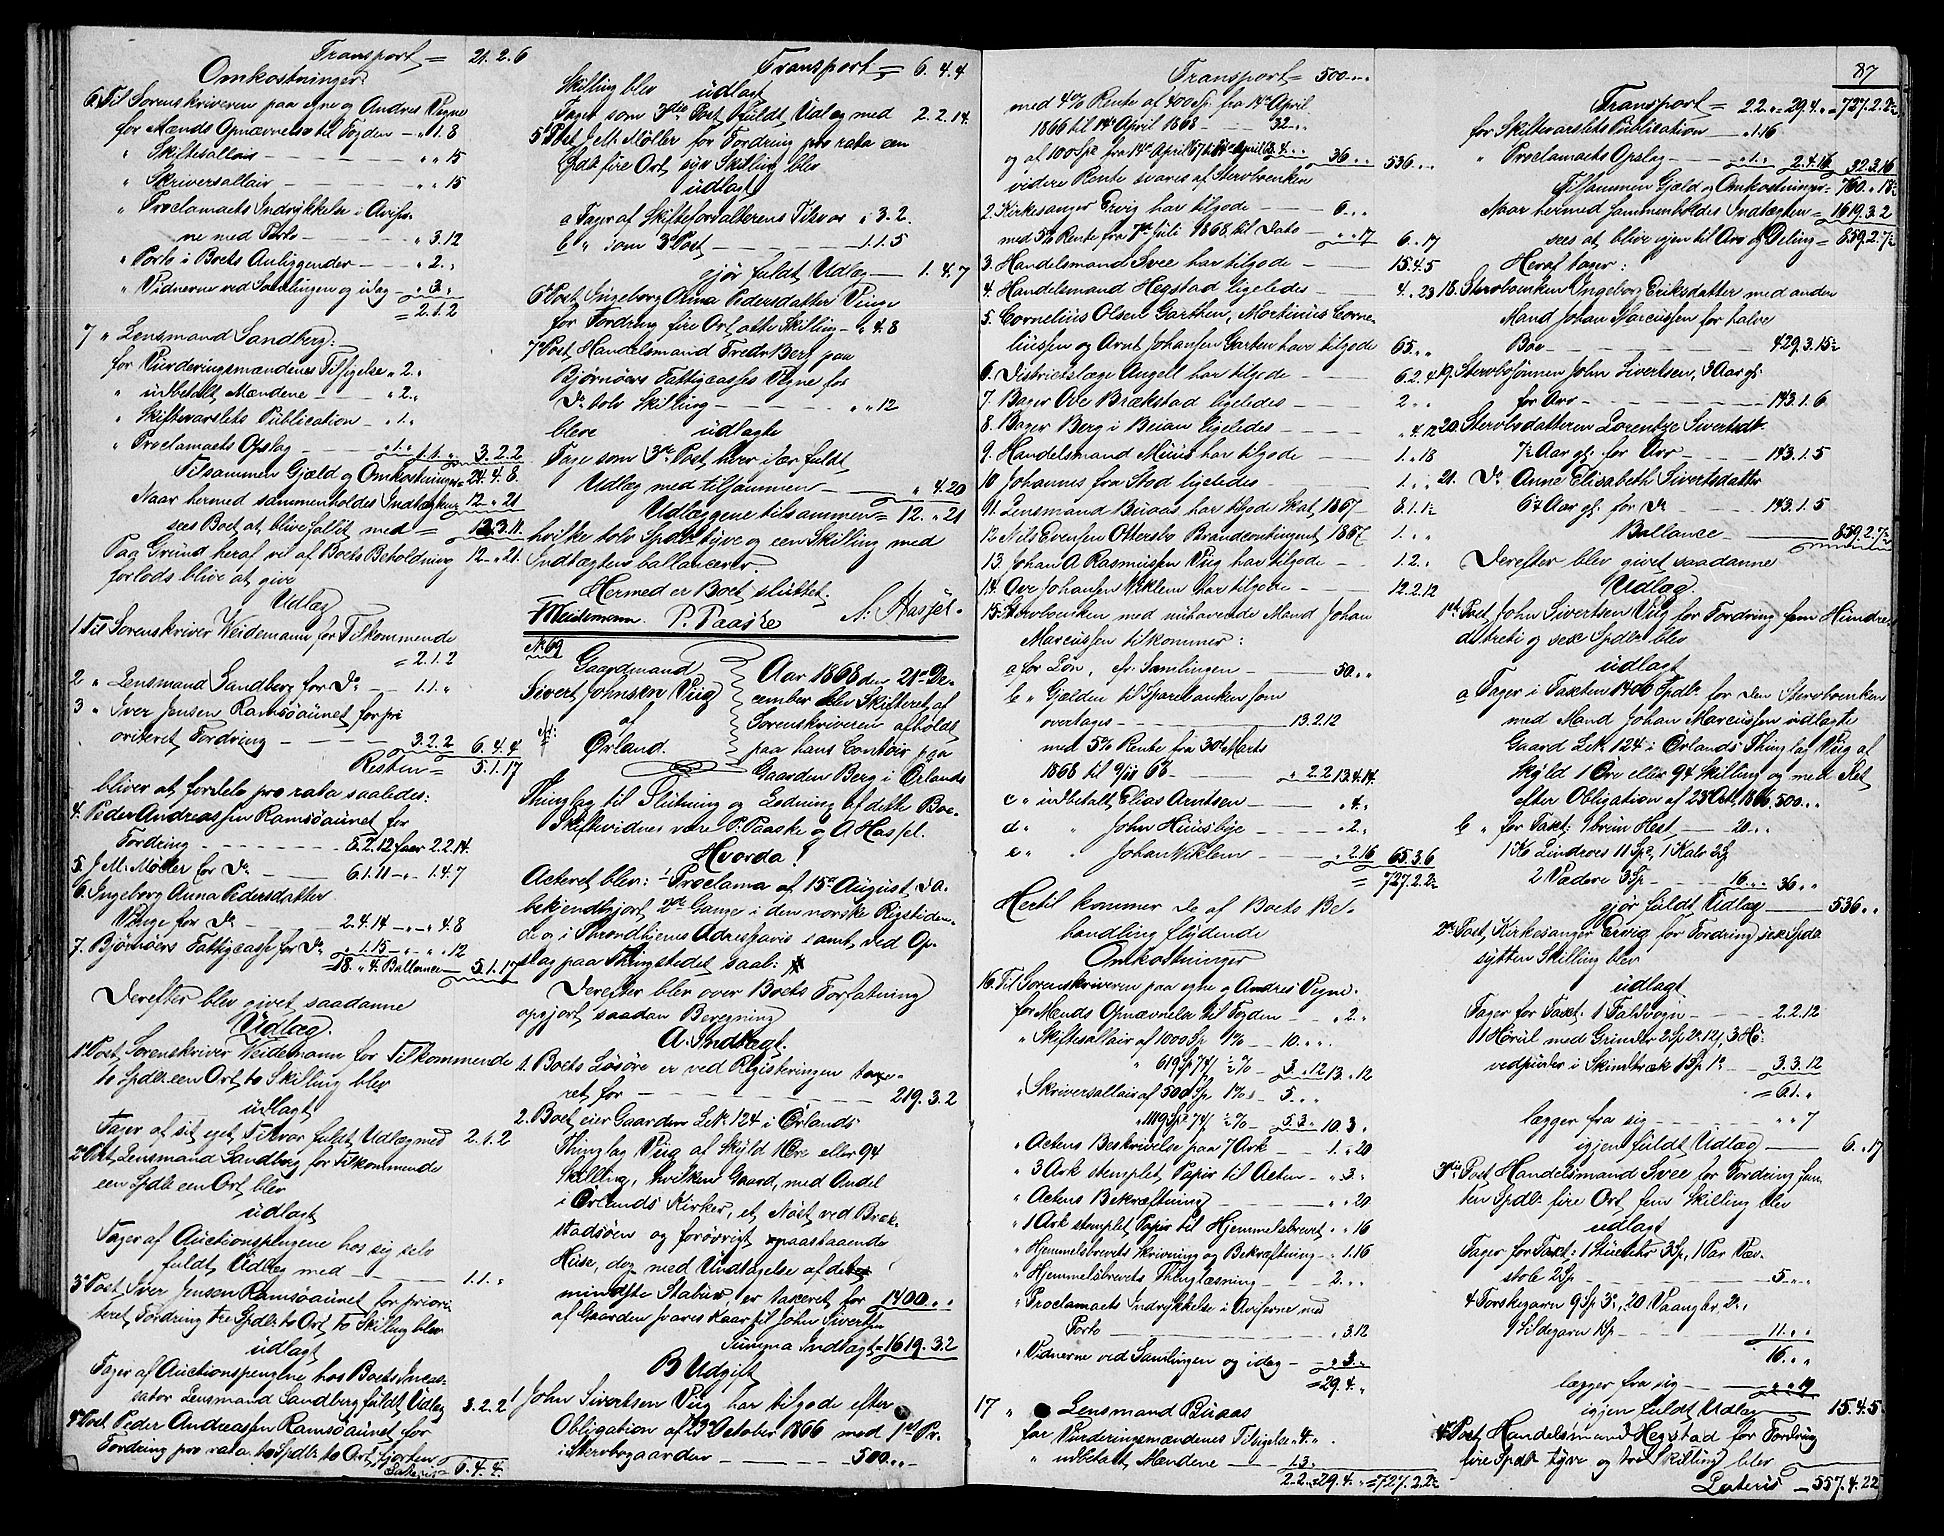 Transport = 21.2.6
Omkostninger:
6. Til Sorenskriveren paa egne og Andres Vegne
for Mænds Opnævnelse til Fogden - „ 1.8
„ Skiftesallair - „ „ 15
„ Skriversallair - „ „ 15
„ Proclamaets Indrykkelse i Aviser-
ne med Porto - „ 3.12
„ Porto i Boets Anliggender - „ 2. „
„ Vidnerne ved Samlingen og idag - „ 3. „
= 2.1.2
7 „ Lensmand Sandberg:
for Vurderingsmændenes Tilsigelse „ 2. „
„ udbetalt Mændene - „ 2. „
„ Skiftevarslets Publication - „ 1. „
„ Proclamaets Opslag - „ 1. „ 1.1. „ 3.2.2
Tilsammen Gjæld og Omkostninger = 24.4.8.
Naar hermed sammenholdes Indtægten 12 „ 21
sees Boet at blive fallit med = 12.3.11
Paa Grund heraf vil af Boets Beholdning 12 „ 21.
forlods blive at give
Udlæg
1. Til Sorenskriver Weidemann for Tilkommende
= 2.1.2
2 „ Lensmand Sandberg for Do - 1.1. „
3 „ Iver Jensen Ramsøaunet for pri
oriteret Fordring - 3.2.2 6.4.4
Resten = 5.1.17
bliver at fordele pro rata saaledes:
4. Peder Andreassen Ramsøaunet for
Fordring - 5.2.12 faar 2.2.14.
5. J. M. Møller for Do - 6.1.11 - „ - 1.4.7
6. Ingeborg Anna Pedersdatter
Vinge for Do - 2.4.14 - „ - „ 4.8
7. Bjørnørs Fattigcasse for Do „ 1.15 - „ „ „ 12
18. „ 4. Ballance 5.1.17
Derefter blev givet saadanne
Udlæg.
1ste Post, Sorenskriver Weidemann for Tilkommende
to Spdlr een Ort to Skilling blev
udlagt
Tager af sit eget Tilsvar fuldt Udlæg med 2.1.2
2den Post, Lensmand Sandberg for Tilkommende
een Spdlr een Ort blev
udlagt
Tager af Auctionspengene hos sig selv
fuldt Udlæg med - 1.1. „
3die Post, Iver Jensen Ramsøaunet for priori-
teret Fordring tre Spdlr to Ort to Skilling blev
udlagt
Tager af Auctionspengene hos Boets Incas-
sator Lensmand Sandberg fuldt Udlæg 3.2.2
4de Post Peder Andreassen Ramsøaunet for
Fordring pro rata to Spdlr to Ort fjorten
Lateris = 6.4.4
Transport = 6.4.4
Skilling blev
udlagt
Tager som 3die Post fuldt Udlæg med 2.2.14.
5te Post J. M. Møller for Fordring pro rata een
Spdlr fire Ort syv Skilling blev
udlagt
a Tager af Skifteforvalterens Tilsvar „ 3.2.
b „ som 3die Post - 1.1.5
gjør fuldt Udlæg - 1.4.7
6te Post, Ingeborg Anna Pedersdatter Vinge
for Fordring fire Ort otte Skilling - „ 4.8
7de Post, Handelsmand Fredr. Berg paa
Bjørnørs Fattigcasses Vegne for
Do tolv Skilling - „ „ 12
bleve udlagte
Tage som 3die Post hver især fuldt
Udlæg med tilsammen - „ 4.20
Udlæggene tilsammen = 12. „ 21
hvilke tolv Spdlr tyve og een Skilling med
Indtægten ballancerer.
Hermed er Boet sluttet.
Weidemann. P. Paaske A. Hassel.
No 69
Gaardmand
Sivert Johnsen Viig
af
Ørland.
Aar 1868 den 21de De-
cember blev Skifteret af
Sorenskriveren afholdt
paa hans Contoir paa
Gaarden Berg i Ørlands
Thinglag til Slutning og Endning af dette Boe.
Skiftevidner vare P. Paaske og A Hassel.
Hvorda!
Acteret blev: 1 Proclama af 15de August d. A.
bekjendtgjort 2de Gange i den norske Rigstiden-
de og i Throndhjems Adresseavis samt ved Op-
slag paa Thingstedet, saal:
Derefter blev over Boets Forfatning
opgjort saadan Beregning
A. Indtægt.
1. Boets Løsøre er ved Registeringen taxe-
ret for - 219.3.2
2. Boet eier Gaarden Lno 124 i Ørlands
Thinglag Viig af Skyld 1 Øre eller 94
Skilling, hvilken Gaard, med Andel
i Ørlands Kirker, et Nøst ved Bræk-
stadsøen og forøvrigt paastaaende
Huse, dog med Undtagelse af det
mindste Stabur, er taxeret for 1400. „ „
af Gaarden svares Kaar til John Sivertsen
Summa Indtægt = 1619.3.2
B Udgift
1 John Sivertsen Viig har tilgode efter
Obligation af 23de October 1866 med 1ste Pr.
i Stervbogaarden - 500. „ „
Transport = 500. „ „
med 4% Rente af 400 Sp. fra 14de April
1866 til 14de April 1868 - 32 „ „
og af 100 Spd fra 14de April 67 til 14de April 68 4. „ „ 36 „ „ 536 „ „
videre Rente svares af Stervboenken
2. Kirkesanger Ervig har tilgode - 6. „ „
med 5% Rente fra 7de Juli 1868 til Dato - „ „ 17 6. „ 17
3. Handelsmand Svee har tilgode - 15.4.5
4. Handelsmand Hegstad ligeledes - 4. „ 23
5. Cornelius Olsen Garthen, Mortinius Corne-
liussen og Arnt Johansen Garten have tilgode 65. „ „
6. Districtslæge Angell har tilgode - 6.2.4
7. Bager Ove Brækstad ligeledes - 2 „ „
8. Bager Berg i Beian ligeledes - „ 4.12
9. Handelsmand Muus har tilgode - 1. „ 18
10 Johannes fra Stod ligeledes - 1. „ „
11. Lensmand Buaas har tilgode Skat 1867 - 8.1.1½
12 Nils Evensen Ottersbo Brandcontingent 1867 1. „ „
13. Johan A Rasmussen Viig har tilgode - 1.2. „
14. Ove Johansen Viklem har tilgode - 12.2.12
15. Stervboenken med nuhavende Mand Johan
Marcussen tilkommer:
a for Løn, før Samlingen - 50. „ „
b „ Gjælden til Sparebanken som
overtages - 13.2.12
med 5% Rente fra 30te Marts
1868 til 9/11 68 - „ 2.2 13.4.14
c „ udbetalt Elias Arntsen - „ 4. „
d „ „ John Huusbye - „ 2. „
e „ „ Johan Viklem - „ 2.16 65.3.6
= 727.2.2½
Hertil kommer de af Boets Be-
handling flydende
Omkostninger
16. Til Sorenskriveren paa egne og Andres Vegne.
for Mænds Opnævnelse til Fogden - „ 2. „
„ Skiftesallair af 1000 Sp 1% - 10. „ „
„ 619 Sp 74 ß ½% - 3. „ 12 13. „ 12
„ Skriversallair af 500 Sp 1% - 5. „ „
„ 1119 Sp 74 ß ½% - 5.3. „ 10.3 „
„ Actens Beskrivelse paa 7 Ark - 1. „ 20
„ 3 Ark stemplet Papir til Acten - „ 3. „
„ Actens Bekræftning - „ „ 20
„ 1 Ark stemplet Papir til Hjemmelsbrevet „ „ 16
„ Hjemmelsbrevets Skrivning og Bekræftning - „ 1.16
„ Hjemmelsbrevets Thinglæsning - 2. „ „
„ Proclamaets Indrykkelse i Aviserne med
Porto - „ 3.12
„ Vidnerne ved Samlingen og idag - „ 3. „
= 29.4. „
17 „ Lensmand Buaas
for Vurderingsmændenes Tilsigelse „ 4. „
„ udbetalt Mændene - 1.3. „
2.2. „ 29.4. „ = 727.2.2½
87
Transport = 2.2. „ 29.4. „ = 727.2.2½
for Skiftevarslets Publication - „ 1.16
„ Proclamaets Opslag - „ 1. „ 2.4.16 32.3.16
Tilsammen Gjæld og Omkostninger = 760. „ 18½
Naar hermed sammenholdes Indtægten = 1619.3.2
sees at blive igjen til Arv og Deling = 859.2.7½
Heraf tager:
18. Stervboenken Ingeborg Eriksdatter med anden
Mand Johan Marcussen for halve
Boe - 429.3.15½
19. Stervbosønnen John Sivertsen, 3 Aar gl:
for Arv - 143.1.6
20. Stervbodatteren Lorentze Sivertsdtr.
7½ Aar gl: for Arv - 143.1.5
21. Do Anne Elisabeth Sivertsdatter
6½ Aar gl: for Do - 143.1.5
Ballance - 859.2.7½
Derefter blev givet saadanne
Udlæg.
1ste Post, John Sivertsen Viig for Fordring fem Hundrede
tredive og sex Spdlr blev
udlagt
a Tager i Taxten 1400 Spdlr for den Stervboenken
med Mand Johan Marcussen udlagte
Gaard Lno 124 i Ørlands Thinglag Viig af
Skyld 1 Øre eller 94 Skilling og med Ret
efter Obligation af 23de Octbr 1866 500. „ „
b „ for Taxt: 1 brun Hest - 20. „ „
1 Ko Lindroes 11 Spd, 1 Kalv 2 Sp
2 Vædere 3 Sp - 16. „ „ 36 „ „
gjør fuldt Udlæg - 536. „ „
2den Post, Kirkesanger Ervig for Fordring sex Spdlr
sytten Skilling blev
udlagt
Tager for Taxt: 1 Faldvogn - 2.2.12
vedpuder i Skindtræk 1 Sp 1 Ort - 3.3.12
= 6.1. „
lægger fra sig - „ „ 7
igjen fuldt Udlæg - 6. „ 17
3die Post, Handelsmand Svee for Fordring fem-
ten Spdlr fire Ort fem Skilling blev
udlagt
stole 2 Sp - 5. „ „
9 Sildegarn 1 Sp - 11. „ „
16. „ „
lægger fra sig - „ „ 19
igjen fuldt Udlæg 15.4.5
4de Post, Handelsmand Hegstad for Fordring
fire Spdlr tyve og tre Skilling blev
Lateris - 557.4.22